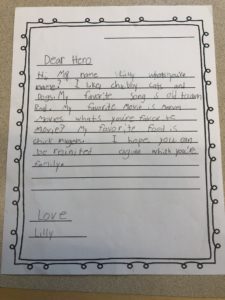 Dear Hero
Hi, My name Lilly whats you're
name? I like chubby cats and
Dogs. My favorite song is old town
Road. My favorite Movie is Marvin
Movies what's you're favorite
movie? My favorite food is
chick nuggeu I hope you can
be reunited again whith you're
family.
Love
Lilly